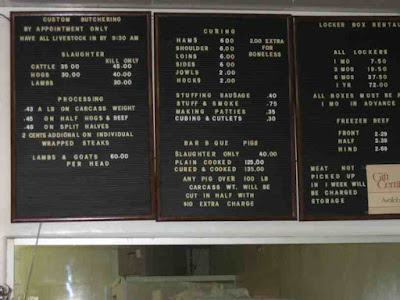 CUSTOM BUTCHERING
BY APPOINTMENT ONLY
HAVE ALL LIVESTOCK IN BY 9:30 AM
SLAUGHTER
KILL ONLY
CATTLE 35.00 45.00
HOGS 30.00 40.00
LAMBS 20.00
PROCESSING
.43 A LB ON CARCASS WEIGHT
.45 ON HALF HOGS & BEEF
.48 ON SPLIT HALVES
2 CENTS ADDIONAL ON INDIVIDUAL
WRAPPED STEAKS
LAMBS & GOATS 60.00
PER HEAD
CURING
HAMS 6.00 2.00 EXTRA
SHOULDER 6.00 FOR
LOINS 6.00 BONELESS
SIDES 6.00
JOWLS 2.00
HOCKS 2.00
STUFFING SAUSAGE .40
STUFF & SMOKE .75
MAKING PATTIES .35
CUBING & CUTLETS .30
BAR B QUE PIGS
SLAUGHTER ONLY 40.00
PLAIN COOKED 125.00
CURED & COOKED 135.00
ANY PIG OVER 100 LB
CARCASS WT. WILL BE
CUT IN HALF WITH
$10 EXTRA CHARGE
LOCKER BOX RENTAL
ALL LOCKERS
1 MO 7.50
3 MOS 19.50
6 MOS 37.50
1 YR 72.00
ALL BOXES MUST BE
1 MO IN ADVANCE
FREEZER BEEF
FRONT 2.29
HALF 2.39
HIND 2.69
MEAT NOT
PICKED UP
IN 1 WEEK WILL
BE CHARGED
STORAGE
Gift